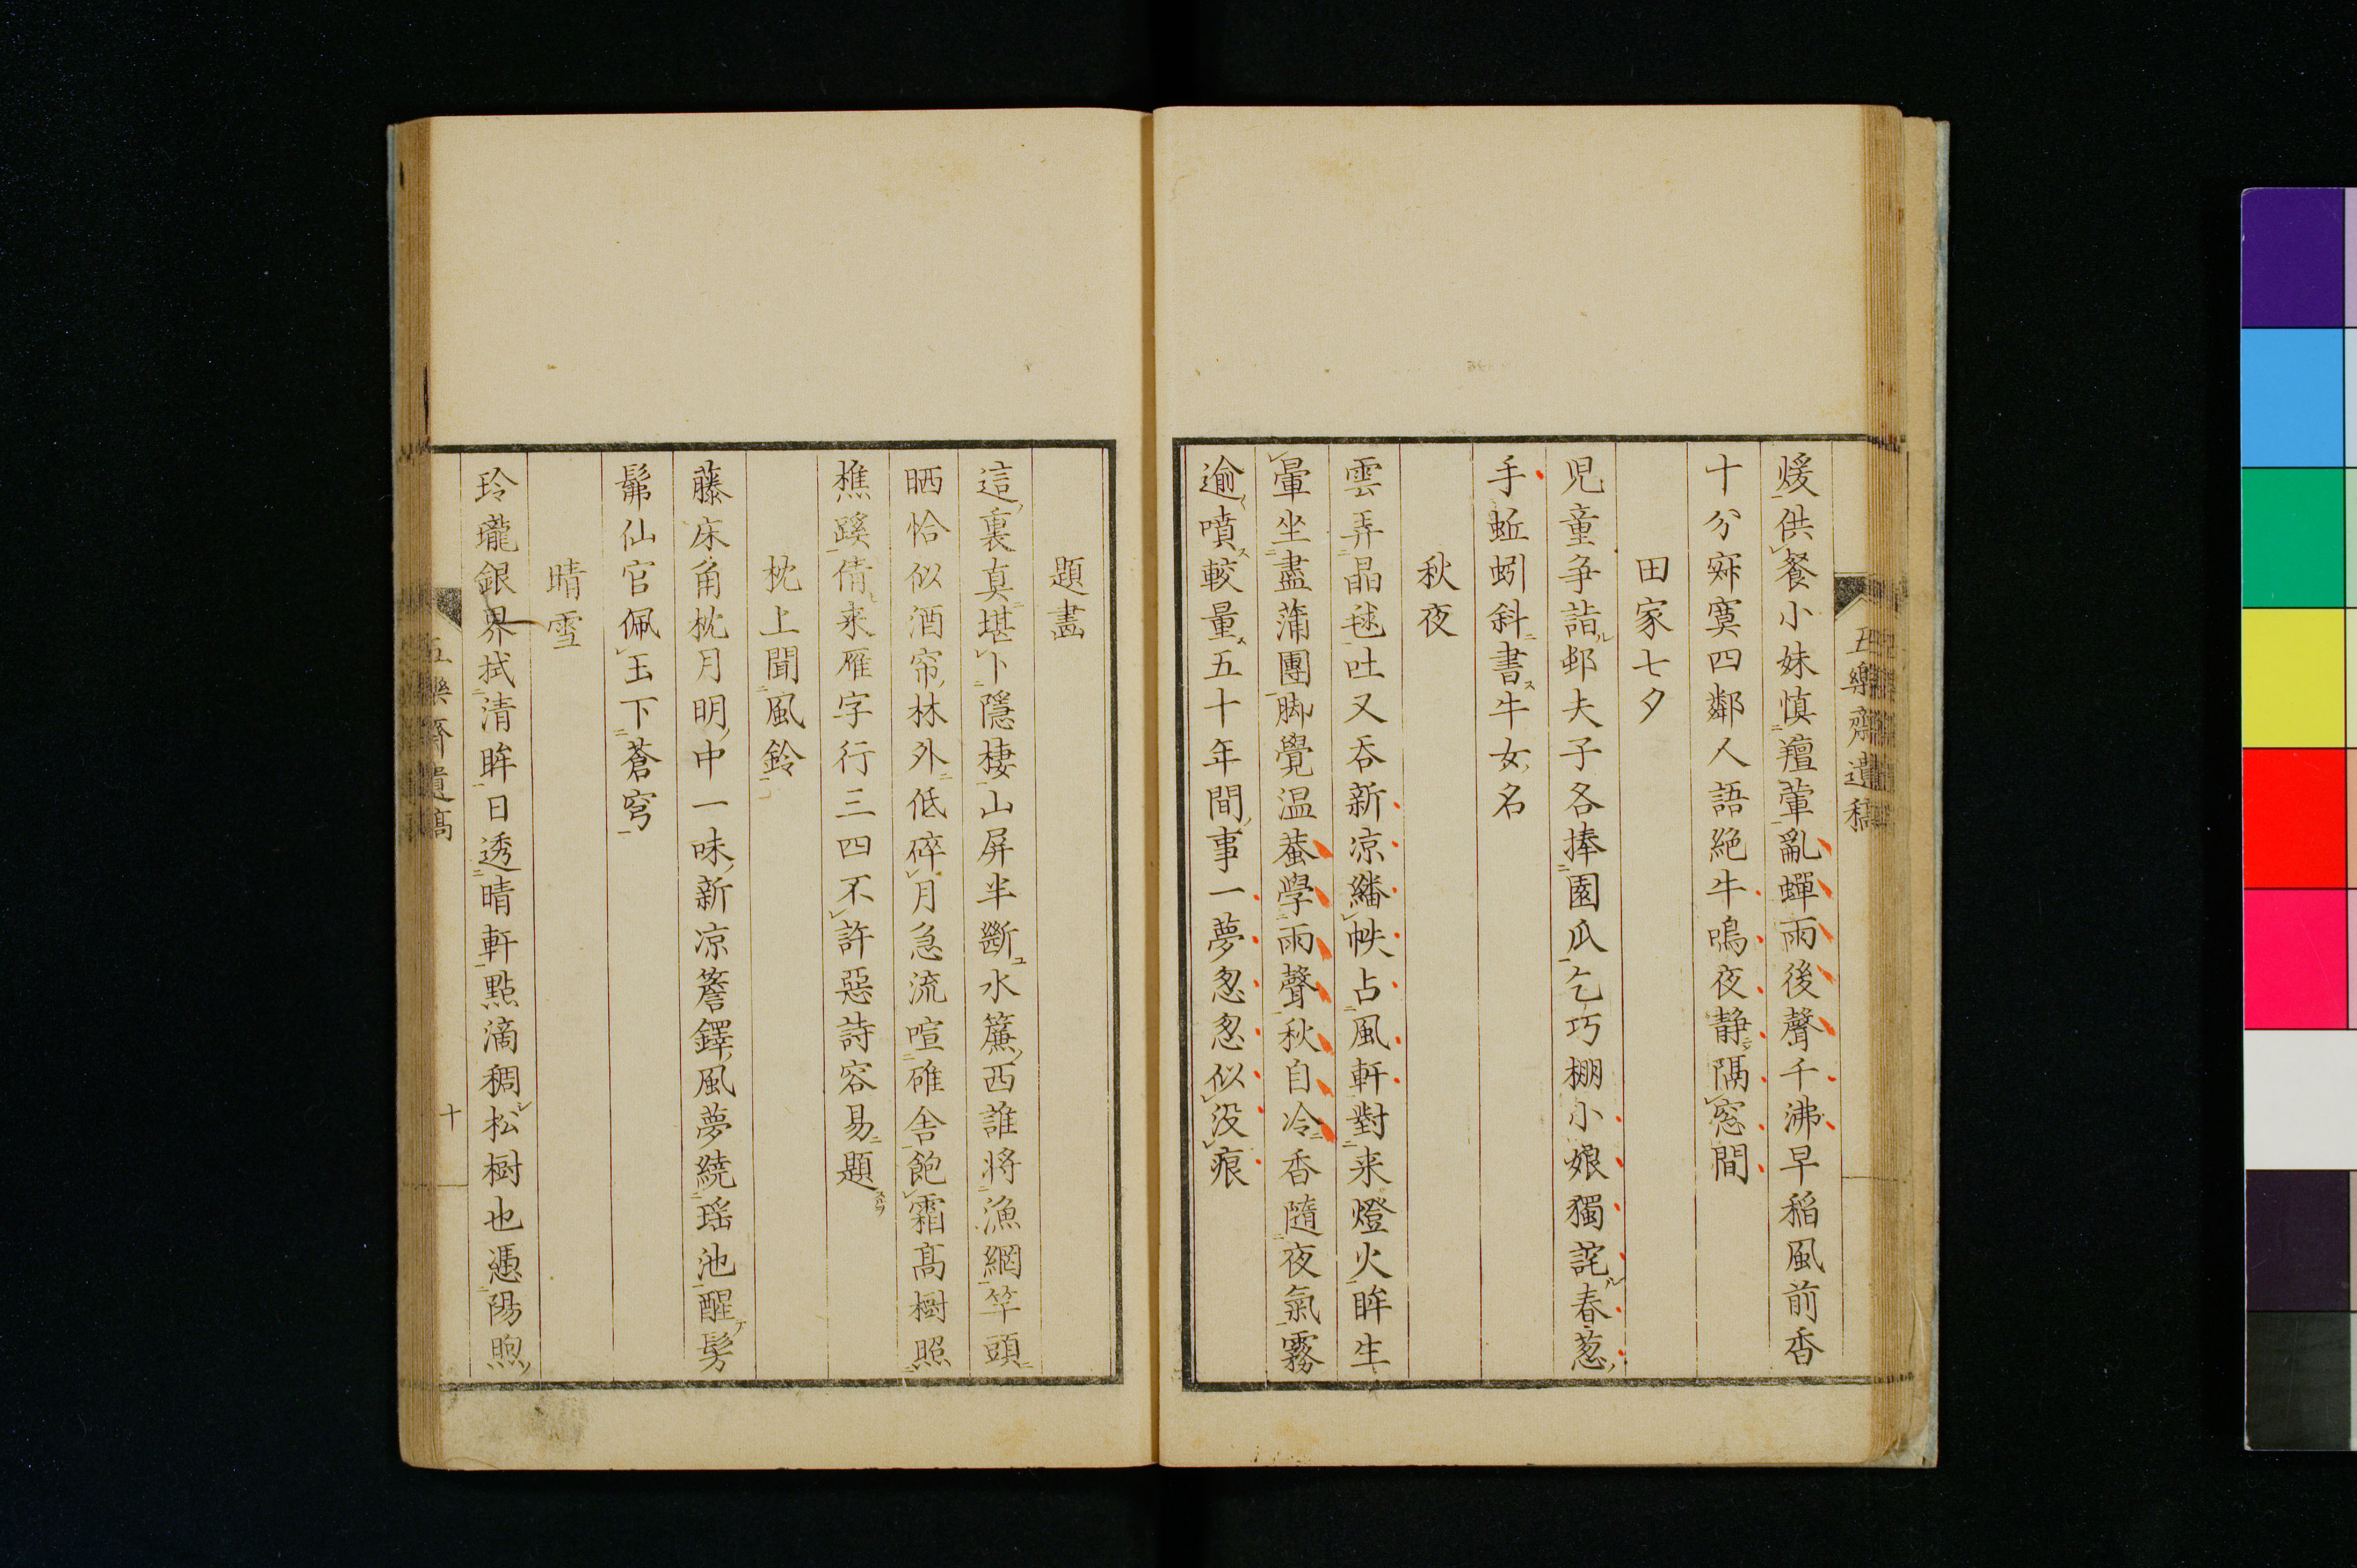 五樂齋遺稿
煖供餐小妹慎羶葷亂蟬雨後聲千沸早稲風前香
十分寂寞四鄰人語絶牛鳴夜静隔窓間
田家七夕
児童争詣邨夫子各捧園瓜乞巧棚小娘獨詫春葱
手蚯蚓斜書牛女名
秋夜
雲弄晶毬吐又呑新凉繙帙占風軒對来燈火眸生
暈坐盡蒲團脚覺温蛬學雨聲秋自冷香隨夜氣霧
逾噴較量五十年間事一夢忽忽似没痕
題畫
這裏真堪卜隱棲山屏半斷水簾西誰将漁網竿頭
晒恰似酒帘林外低碎月急流喧碓舎飽霜髙樹照
樵蹊倩来雁字行三四不許惡詩容易題
枕上聞風鈴
藤床角枕月明中一味新凉簷鐸風夢繞瑶池醒髣
髴仙官佩玉下蒼穹
晴雪
玲瓏銀界拭清眸日透晴軒點滴稠松樹也憑陽煦
五樂齋遺髙
十